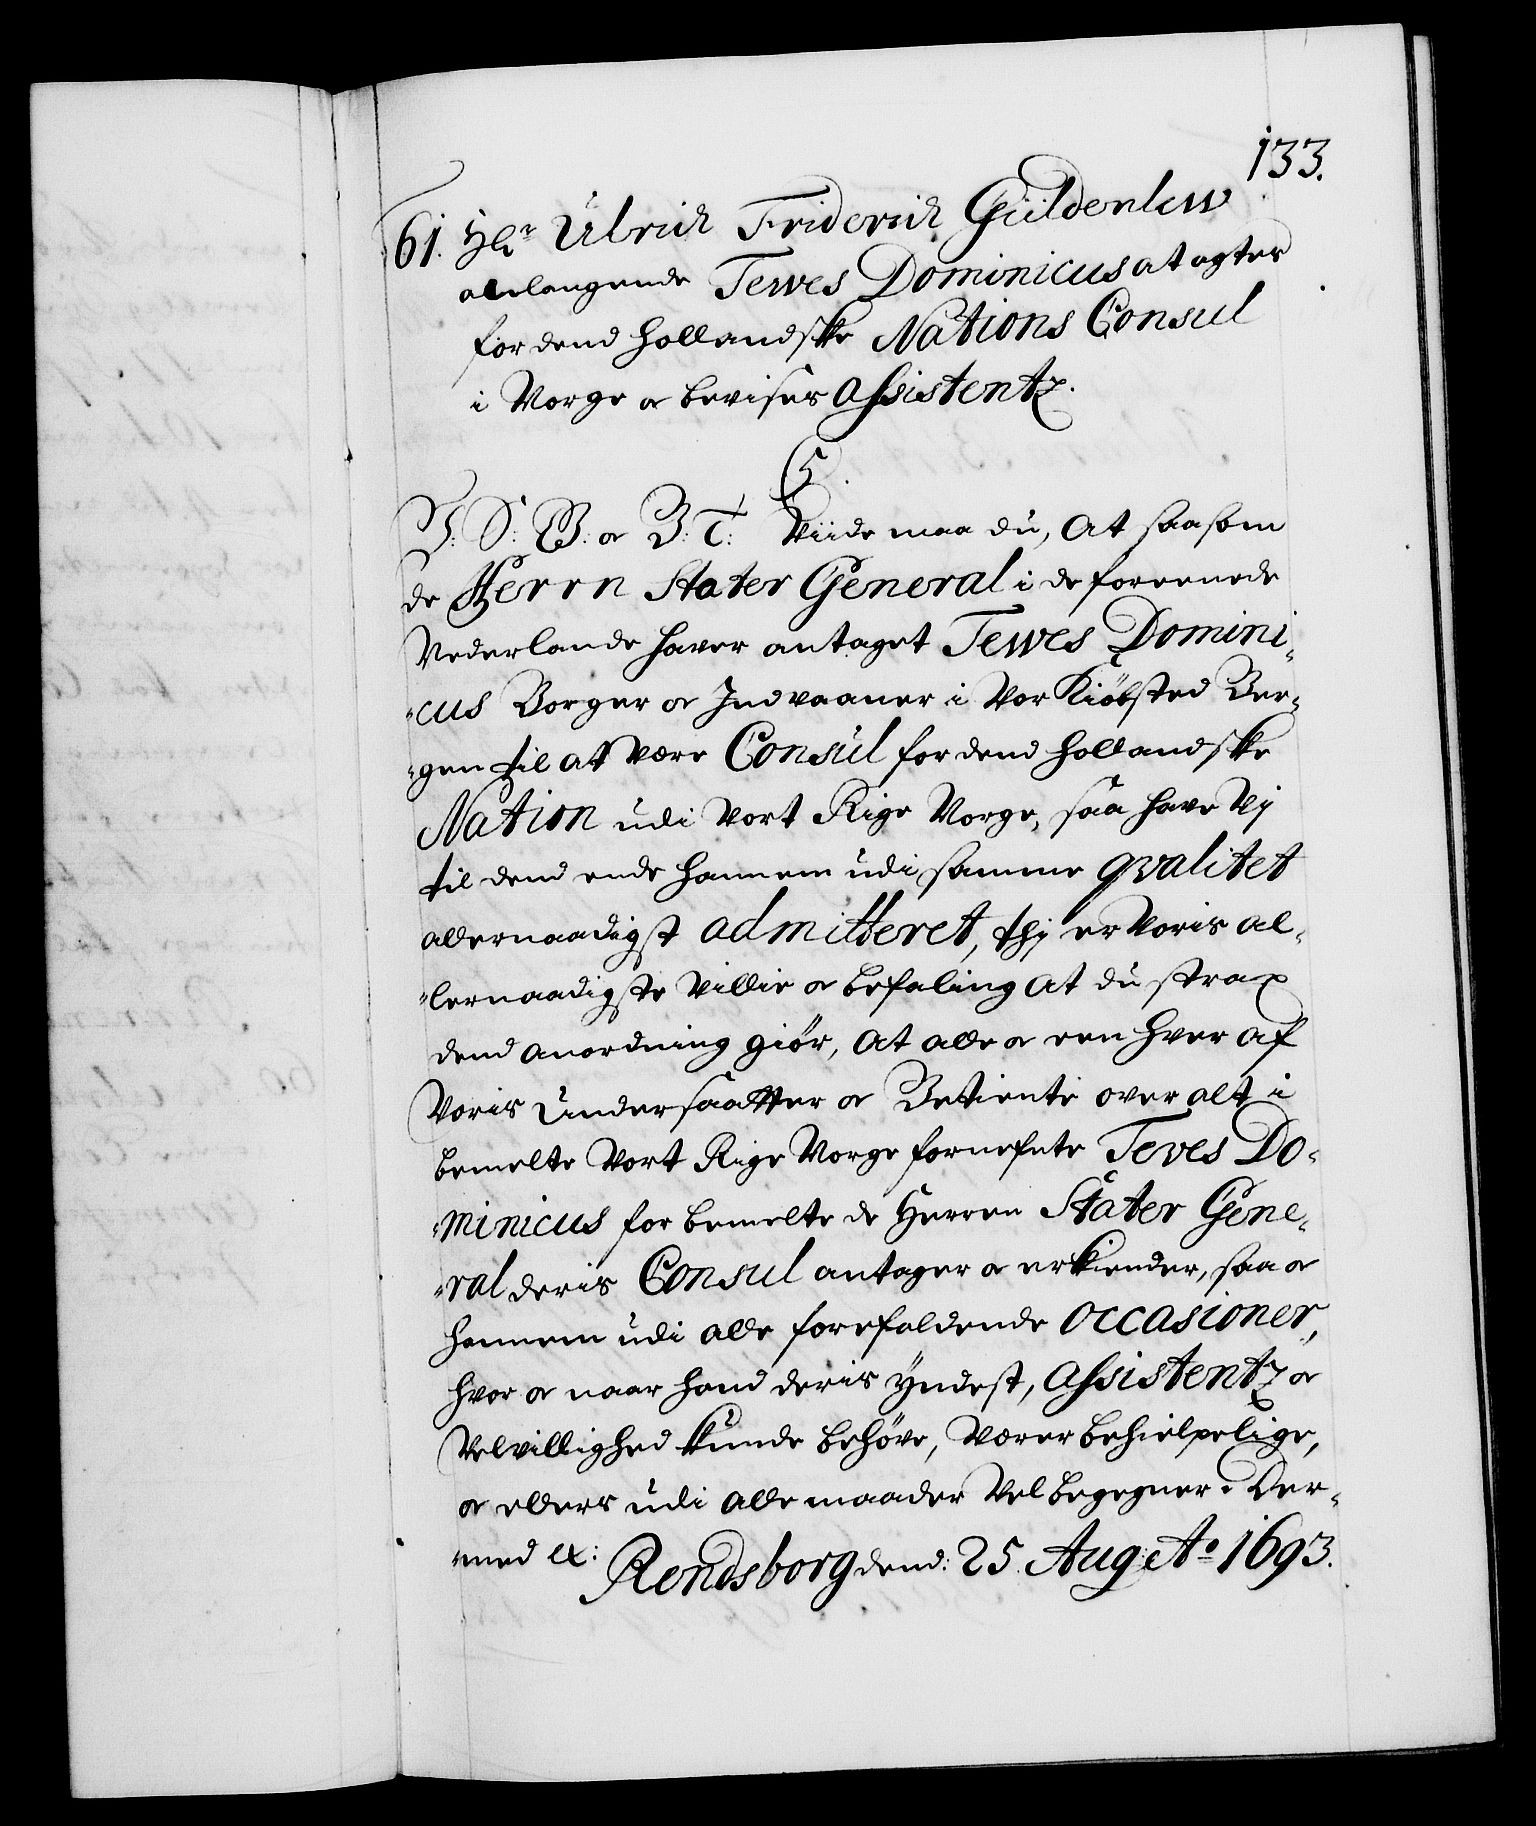 133.
61. Hr Ulrich Friderich Güldenlew
anlangende Tewes Dominicus at agtes
for dend Hollandske Nations Consul
i Norge oc bevises Assistentz.
C5.
V: S: G: oc B: T: Viide maa du, at saasom
de Herrn Stater General i de foreenede
Nederlande hafver antaget Tewes Domini-
-cus Borger oc Indvaaner i Vor Kiöbsted Ber-
-gen til at være Consul for dend Hollandske
Nation udi Vort Rige Norge, saa have Vj
til dend ende hannem udi samme qvalitet
allernaadigst admitteret, thj er Voris al-
-lernaadigste Villie oc befaling at du strax
dend anordning giör, at alle oc een hver af
Voris Undersaatter oc Betiente over alt i
bemelte Vort Rige Norge fornefnte Teves Do-
-minicus for bemelte de Herren Stater Gene-
-ral deris Consul antager oc erkiender, saa oc
hannem udi alle forefaldende occasioner,
hvor oc naar hand deris yndest, Assistentz oc
Velvillighed kunde behöve, Værer behielpelige,
oc ellers udi alle maader Vel begegner. Der-
med etc: Rendsborg dend: 25. Aug: Ao 1693.